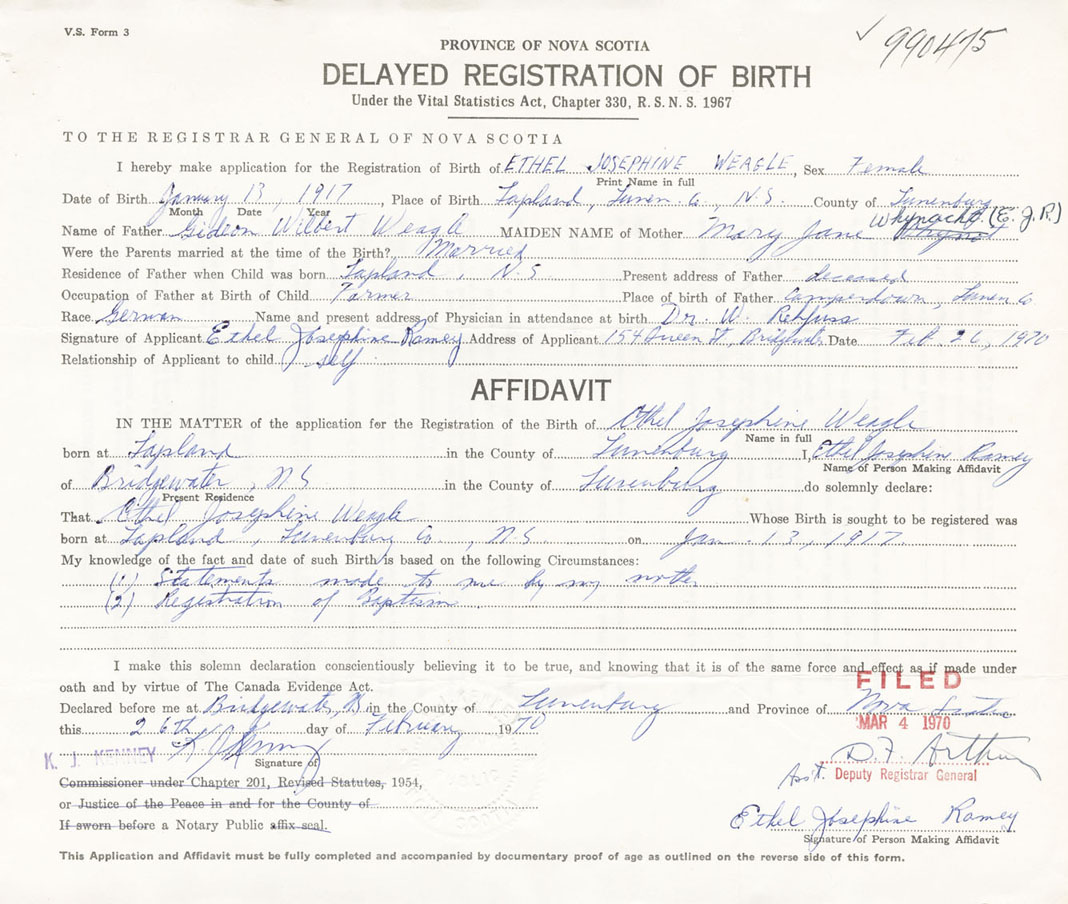 V.S. Form 3
✓ 990475
PROVINCE OF NOVA SCOTIA
DELAYED REGISTRATION OF BIRTH
Under the Vital Statistics Act, Chapter 330, R.S.N.S. 1967
TO THE REGISTRAR GENERAL OF NOVA SCOTIA
I hereby make application for the Registration of Birth of ETHEL JOSEPHINE WEAGLE, Sex Female
Print Name in full
Date of Birth January 13, 1917, Place of Birth Lapland, Lunen. Co, N.S. County of Lunenburg
Month Date Year
Name of Father Gideon Wilbert Weagle MAIDEN NAME of Mother Mary Jane Whynacht (E.J.R.)
Were the Parents married at the time of the Birth? Married
Residence of Father when Child was born Lapland, N.S Present address of Father deceased
Occupation of Father at Birth of Child Farmer Place of birth of Father Camperdown, Lunen Co
Race German Name and present address of Physician in attendance at birth Dr. W. Rehfuss
Signature of Applicant Ethel Josephine Ramey Address of Applicant 154 Queen St, Bridgewater Date Feb. 26, 1970
Relationship of Applicant to child self
AFFIDAVIT
IN THE MATTER of the application for the Registration of the Birth of Ethel Josephine Weagle
Name in full
born at Lapland in the County of Lunenburg I, Ethel Josephine Ramey
Name of Person Making Affidavit
of Bridgewater, NS in the County of Lunenburg do solemnly declare:
Present Residence
That Ethel Josephine Weagle Whose Birth is sought to be registered was
born at Lapland, Lunenburg Co., NS on Jan. 13, 1917.
My knowledge of the fact and date of such Birth is based on the following Circumstances:
(1) Statements made to me by my mother
(2) Registration of Baptism.
I make this solemn declaration conscientiously believing it to be true, and knowing that it is of the same force and effect as if made under
oath and by virtue of The Canada Evidence Act.
FILED
Declared before me at Bridgewater, in the County of Lunenburg and Province of Nova Scotia
MAR 4 1970
this 26th day of February 1970
K. J. KENNEY K J Kenney D.F. Arthur
Signature of
Asst. Deputy Registrar General
Commissioner under Chapter 201, Revised Statutes, 1954,
or Justice of the Peace in and for the County of
If sworn before a Notary Public affix seal.
Ethel Josephine Ramey
Signature of Person Making Affidavit
This Application and Affidavit must be fully completed and accompanied by documentary proof of age as outlined on the reverse side of this form.